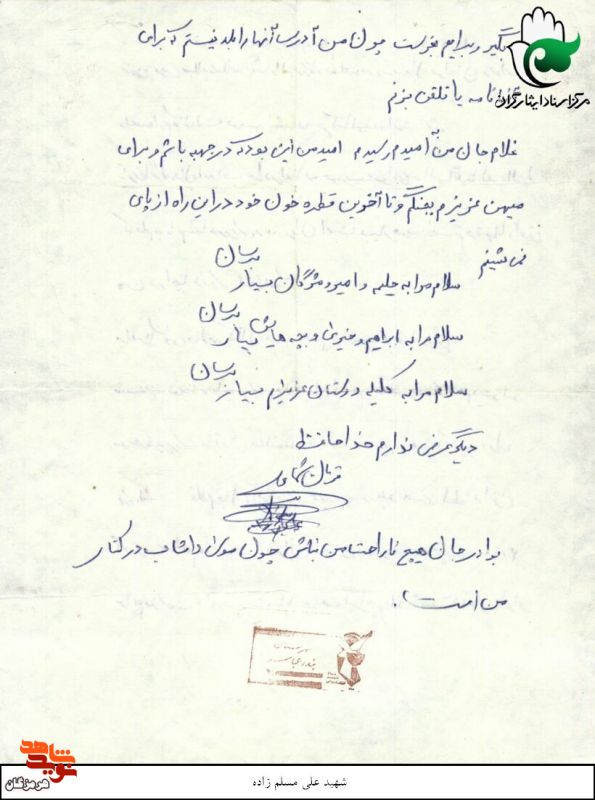 بگیر و برایم بفرست چون من آدرس آنها را بلد نیستم که برای
نامه یا تلفن بزنم
مرکز اسناد ایثارگران
غلام جان من به آمیدم رسیدم امید من این بود که در جبهه باشم و برای
میهن عزیزم بجنگم و تا آخرین قطره خون خود در این راه از پای
نمی شینم
سلام مرا به حلیمه و امیر و مژگان بسیار برسان
سلام مرا به ابراهیم و و بچه هایش بسیار برسان
سلام مرا به کلیه دوستان عزیزم بسیار برسان
دیگر عرضی ندارم خداحافظ
قربان شما علی
برادر جان هیچ ناراحت من نباش چون داشاب در کنار
من است.
بندرعباس
نوید شاهد
هرمزگان
شهید علی مسلم زاده